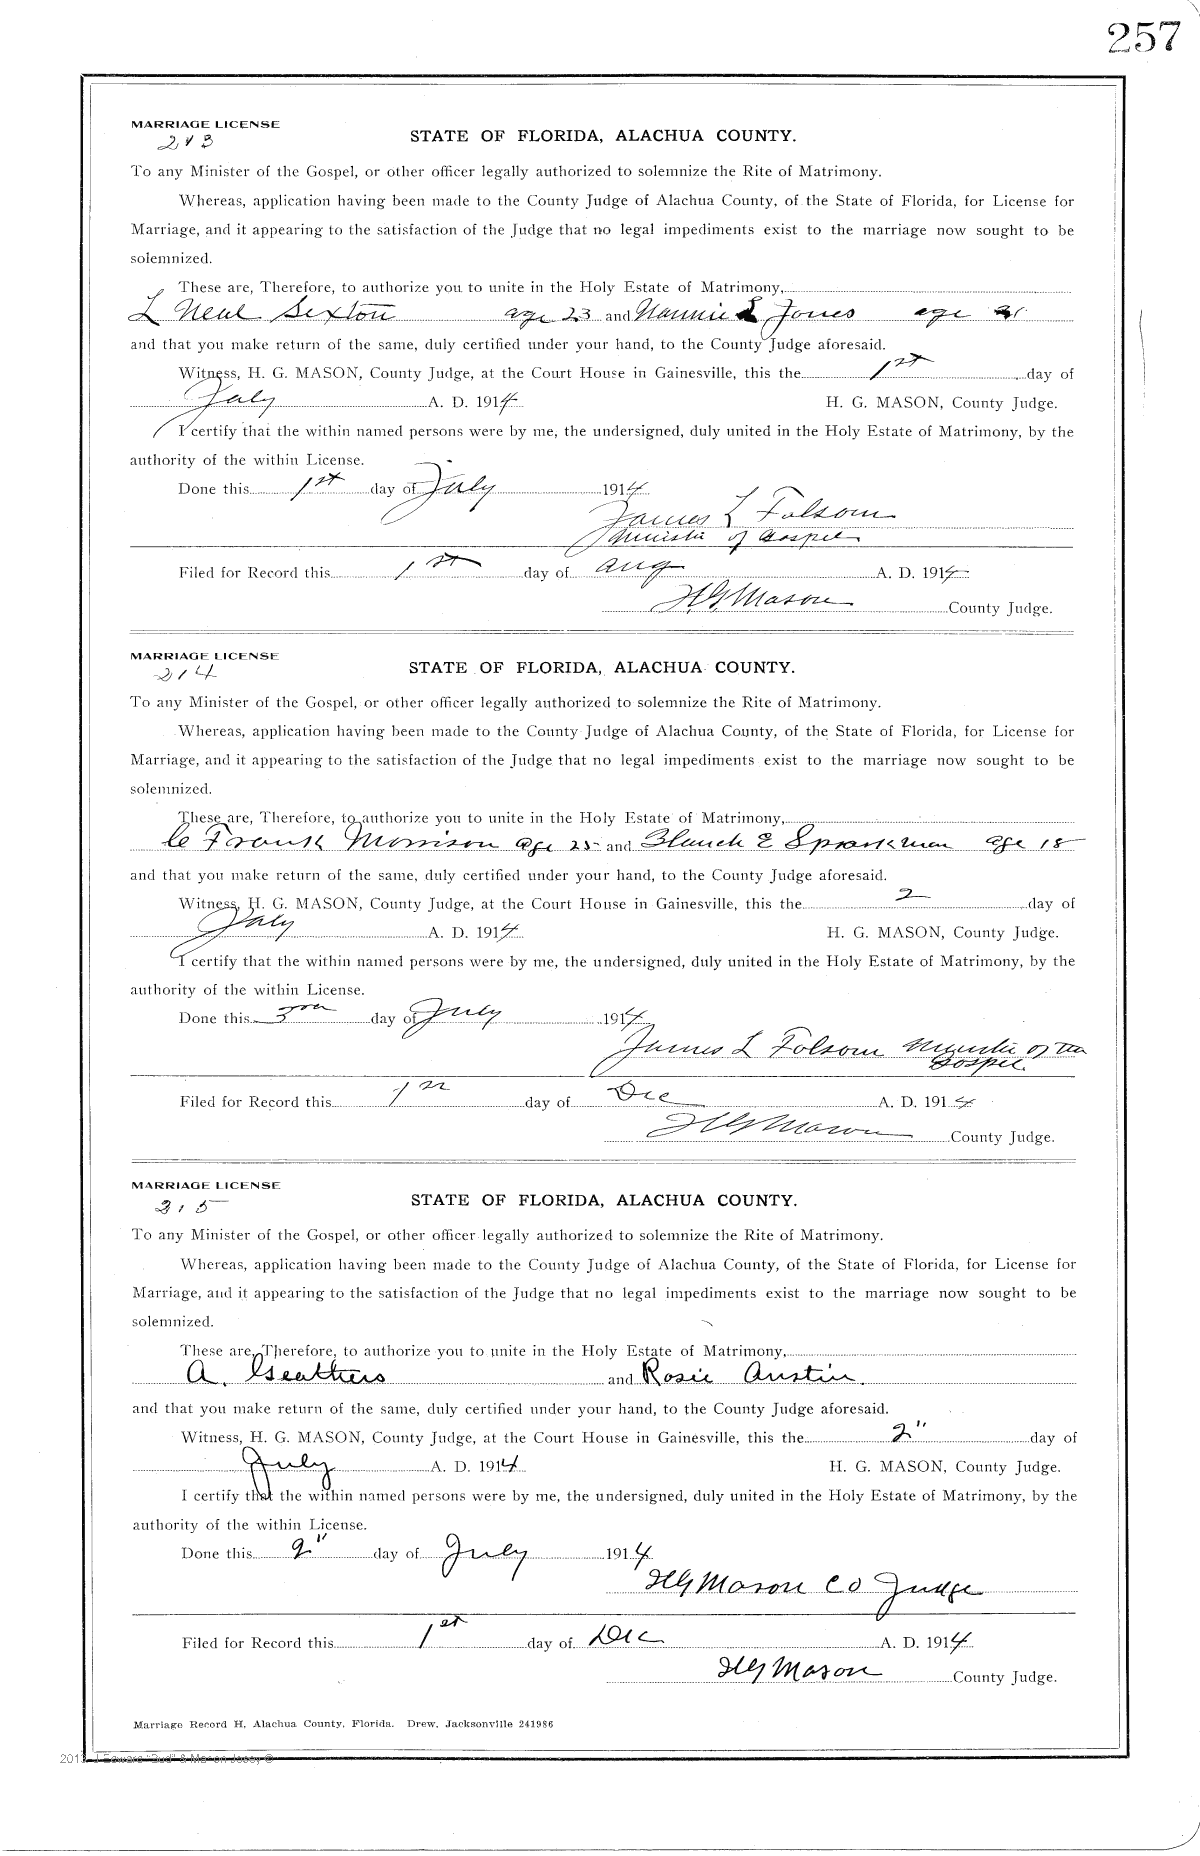 257
MARRIAGE LICENSE
213
STATE OF FLORIDA, ALACHUA COUNTY.
To any Minister of the Gospel, or other officer legally authorized to solemnize the Rite of Matrimony.
Whereas, application having been made to the County Judge of Alachua County, of the State of Florida, for License for
Marriage, and it appearing to the satisfaction of the Judge that no legal impediments exist to the marriage now sought to be
solemnized.
These are, Therefore, to authorize you to unite in the Holy Estate of Matrimony,
L Neal Sexton age 23 and Nannie L Jones age
and that you make return of the same, duly certified under your hand, to the County Judge aforesaid.
Witness, H. G. MASON, County Judge, at the Court House in Gainesville, this the 1st day of
July A. D. 1914 H. G. MASON, County Judge.
I certify that the within named persons were by me, the undersigned, duly united in the Holy Estate of Matrimony, by the
authority of the within License.
Done this 1st day of July 1914
James L Folsom
Minister of Gospel
Filed for Record this 1st day of Aug A. D. 1914
H.G. Mason County Judge.
MARRIAGE LICENSE
214
STATE OF FLORIDA, ALACHUA COUNTY.
To any Minister of the Gospel, or other officer legally authorized to solemnize the Rite of Matrimony.
Whereas, application having been made to the County Judge of Alachua County, of the State of Florida, for License for
Marriage, and it appearing to the satisfaction of the Judge that no legal impediments exist to the marriage now sought to be
solemnized.
These are, Therefore, to authorize you to unite in the Holy Estate of Matrimony,
C Frank Morrison age 25 and Blanch E Sparkman age 18
and that you make return of the same, duly certified under your hand, to the County Judge aforesaid.
Witness, H. G. MASON, County Judge, at the Court House in Gainesville, this the 2 day of
July A. D. 1914 H. G. MASON, County Judge.
I certify that the within named persons were by me, the undersigned, duly united in the Holy Estate of Matrimony, by the
authority of the within License.
Done this 3rd day of July 1914
James L Folsom Minister of the
Gospel.
Filed for Record this 1st day of Dec A. D. 1914
HG Mason County Judge.
MARRIAGE LICENSE
215
STATE OF FLORIDA, ALACHUA COUNTY.
To any Minister of the Gospel, or other officer legally authorized to solemnize the Rite of Matrimony.
Whereas, application having been made to the County Judge of Alachua County, of the State of Florida, for License for
Marriage, and it appearing to the satisfaction of the Judge that no legal impediments exist to the marriage now sought to be
solemnized.
These are, Therefore, to authorize you to unite in the Holy Estate of Matrimony,
A. Geathers and Rosie Austin.
and that you make return of the same, duly certified under your hand, to the County Judge aforesaid.
Witness, H. G. MASON, County Judge, at the Court House in Gainesville, this the 2" day of
July A. D. 1914 H. G. MASON, County Judge.
I certify that the within named persons were by me, the undersigned, duly united in the Holy Estate of Matrimony, by the
authority of the within License.
Done this 2" day of July 1914
HG Mason Co Judge
Filed for Record this 1st day of Dec A. D. 1914
HG Mason County Judge.
Marriage Record H, Alachua County, Florida. Drew, Jacksonville 241986